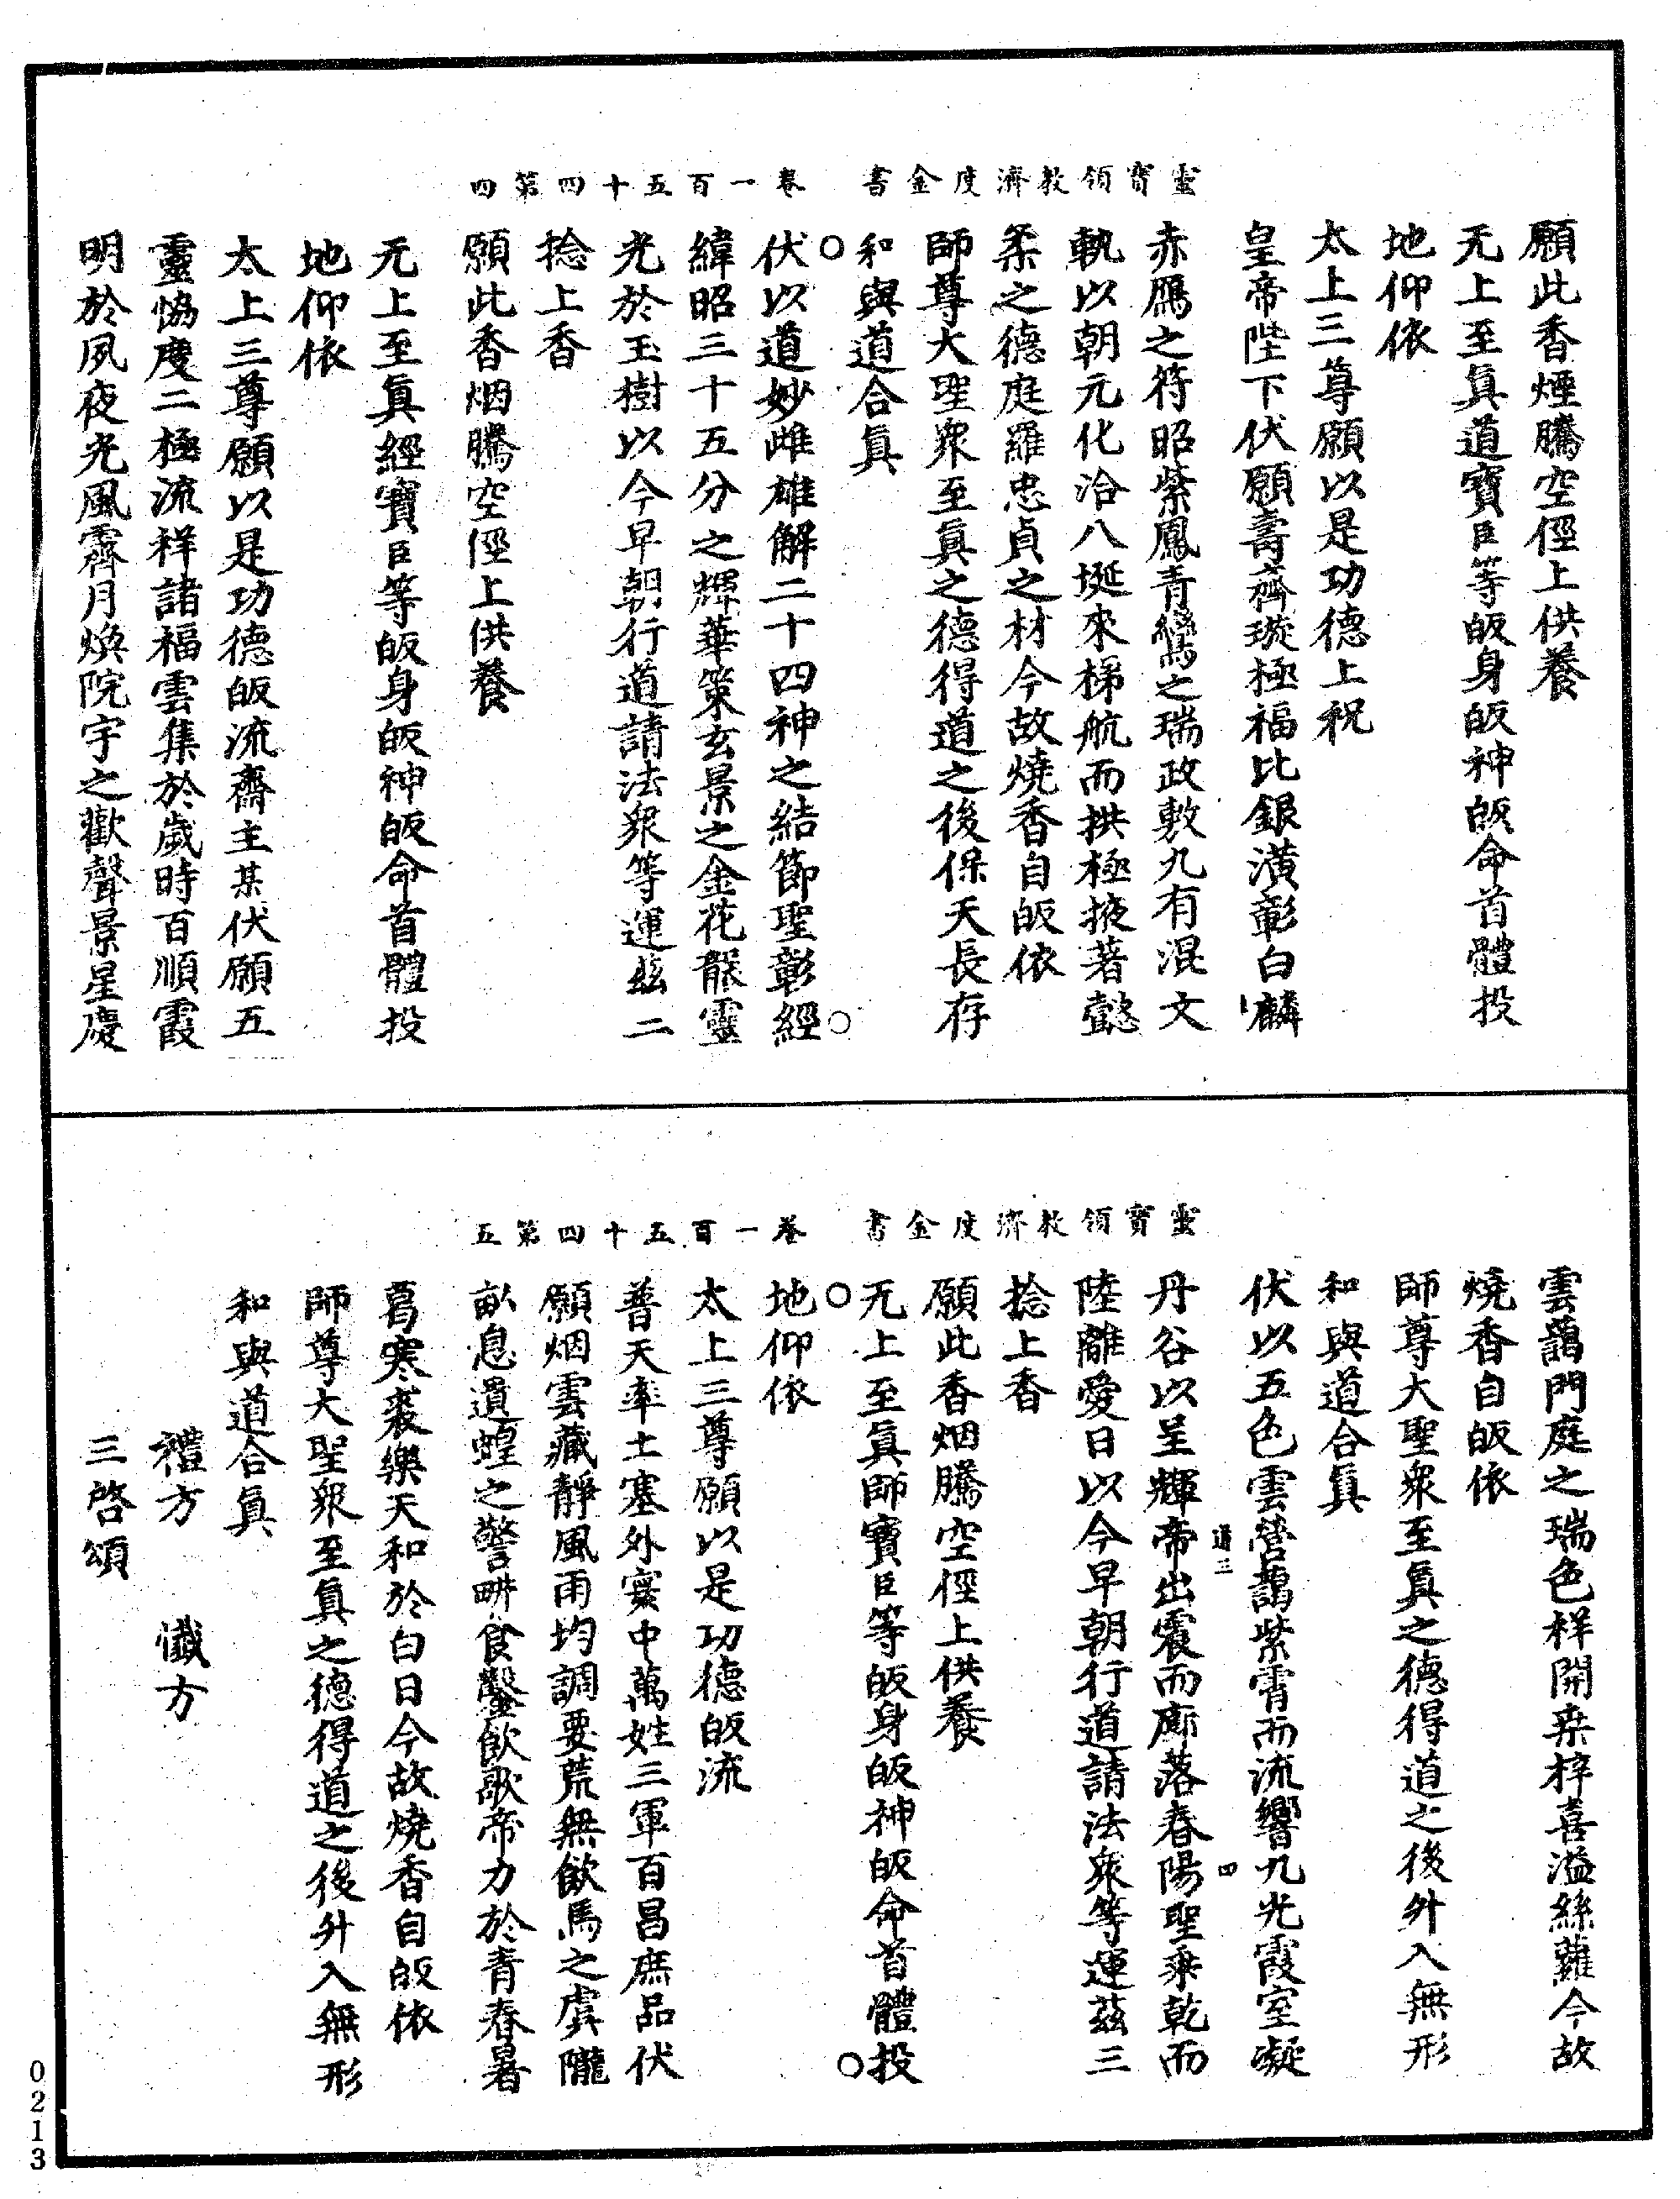 靈寶領教濟度金書 卷一百五十四第四
願此香煙騰空徑上供養
无上至眞道寶臣等皈身皈神皈命首體投
地仰依
太上三尊願以是功德上祝
皇帝陛下伏願壽齊璇極福比銀潢彰白麟
赤鴈之符昭紫鳳青鸞之瑞政敷九有混文
軌以朝元化洽八埏來梯航而拱極掖著懿
柔之德庭羅忠貞之材今故燒香自皈依
師尊大聖衆至眞之德得道之後保天長存
和與道合眞
伏以道妙雌雄解二十四神之結節聖彰經
緯昭三十五分之輝華策玄景之金花龥靈
光於玉樹以今早朝行道請法衆等運兹二
捻上香
願此香烟騰空徑上供養
无上至眞經寶臣等皈身皈神皈命首體投
地仰依
太上三尊願以是功德皈流齋主某伏願五
靈恊慶二極流祥諸福雲集於歲時百順霞
明於夙夜光風霽月煥院宇之歡聲景星慶
靈寶領教濟度金書 卷一百五十四第五
雲藹門庭之瑞色祥開桒梓喜溢絲蘿今故
燒香自皈依
師尊大聖衆至眞之德得道之後升入無形
和與道合眞
伏以五色雲營藹紫霄而流響九光霞室凝
道三 四
丹谷以呈輝帝出震而廊落春陽聖乘乾而
陸離愛日以今早朝行道請法衆等運茲三
捻上香
願此香烟騰空徑上供養
无上至眞師寶臣等皈身皈神皈命首體投
地仰依
太上三尊願以是功德皈流
普天率土塞外寰中萬姓三軍百昌庶品伏
願烟雲藏靜風雨均調要荒無飲馬之虞隴
畝息遺蝗之警畊食鑿飲歌帝力於青春暑
葛寒裘樂天和於白日今故燒香自皈依
師尊大聖衆至眞之德得道之後升入無形
和與道合眞
禮方 懺方
三啓頌
0213